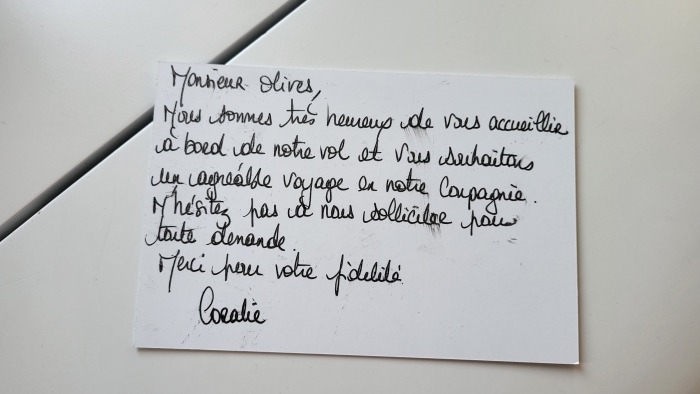 Monsieur Olives,
Nous sommes très heureux de vous accueillir
à bord de notre vol et vous souhaitons
un agréable voyage en notre Compagnie.
N'hésitez pas à nous solliciter pour
toute demande.
Merci pour votre fidélité
Coralie